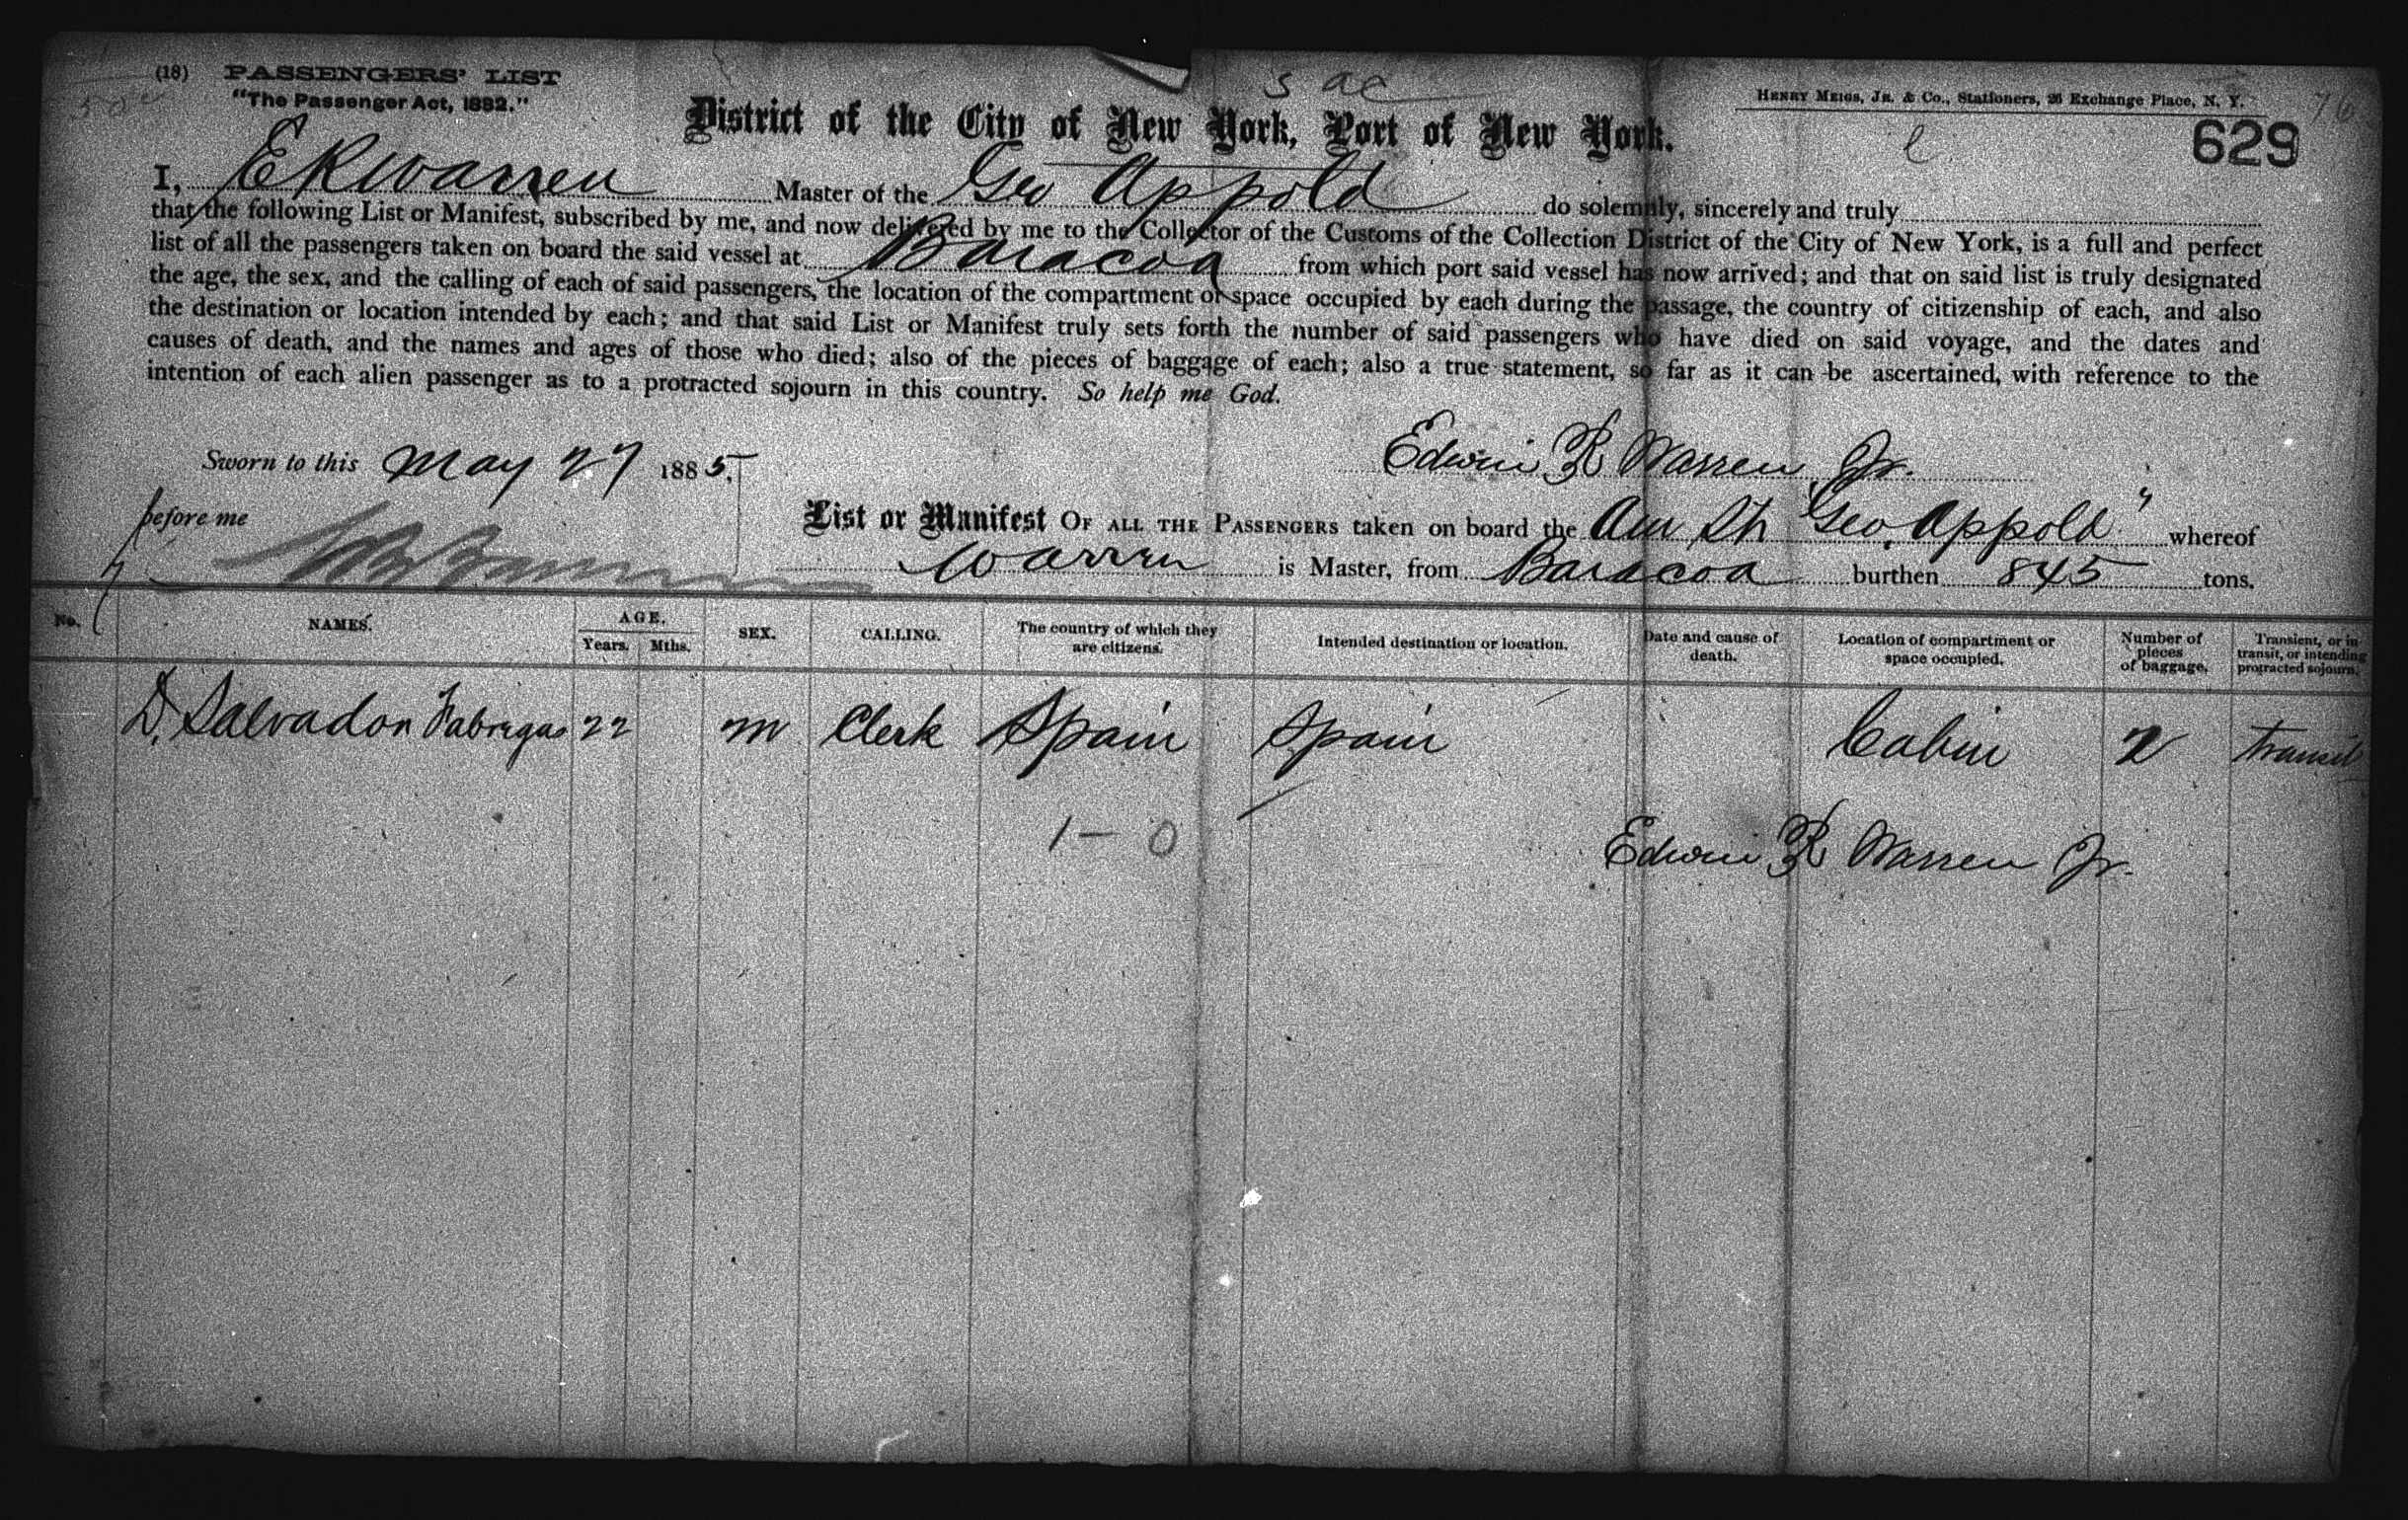 (18) PASSENGERS' LIST
"The Passenger Act, 1882."
s ac
HENRY MEIGS, JR. & CO., Stationers, 26 Exchange Place, N. Y.
76
District of the City of New York, Port of New York.
629
I, E R Warren Master of the Geo Appold do solemnly, sincerely and truly
that the following List or Manifest, subscribed by me, and now delivered by me to the Collector of the Customs of the Collection District of the City of New York, is a full and perfect
list of all the passengers taken on board the said vessel at Baracoa from which port said vessel has now arrived; and that on said list is truly designated
the age, the sex, and the calling of each of said passengers, the location of the compartment or space occupied by each during the passage, the country of citizenship of each, and also
the destination or location intended by each; and that said List or Manifest truly sets forth the number of said passengers who have died on said voyage, and the dates and
causes of death, and the names and ages of those who died; also of the pieces of baggage of each; also a true statement, so far as it can be ascertained, with reference to the
intention of each alien passenger as to a protracted sojourn in this country. So help me God.
Sworn to this May 27 1885,
Edwin R Warren Jr.
before me
List or Manifest OF ALL THE PASSENGERS taken on board the Am Sh "Geo. Appold" whereof
Warren is Master, from Baracoa burthen 845 tons.
No. NAMES. AGE. Years. Mths. SEX. CALLING. The country of which they are citizens. Intended destination or location. Date and cause of death. Location of compartment or space occupied. Number of pieces of baggage. Transient, or in transit, or intending protracted sojourn.
D. Salvador Fabregas 22 M Clerk Spain Spain Cabin 2 transit
1 - 0
Edwin R Warren Jr.